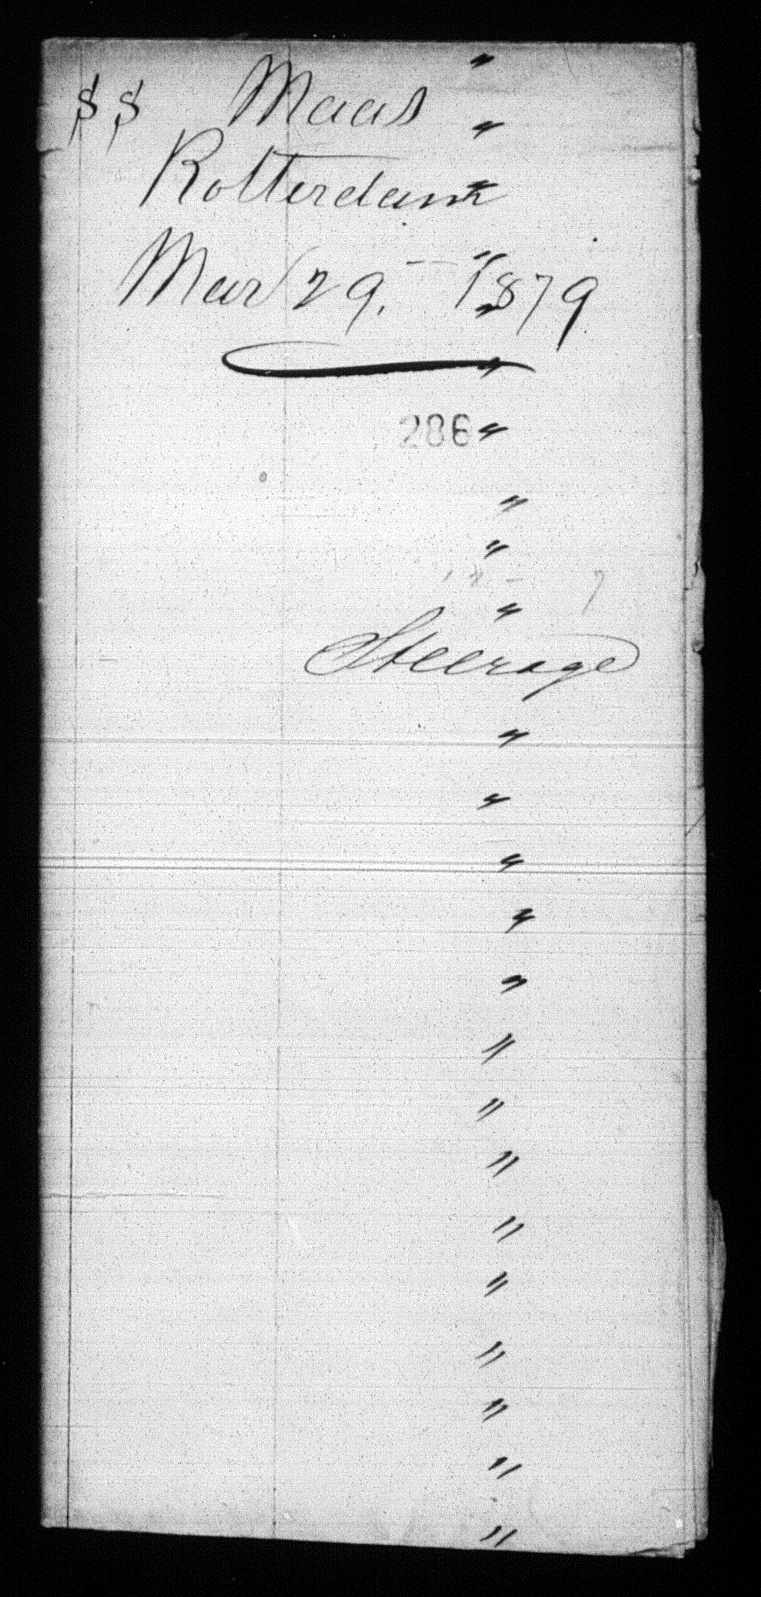 SS Maas "
"
Rotterdam "
"
Mar 29, - 1879
"
"
286 "
"
"
"
Steerage
"
"
"
"
"
"
"
"
"
"
"
"
"
"